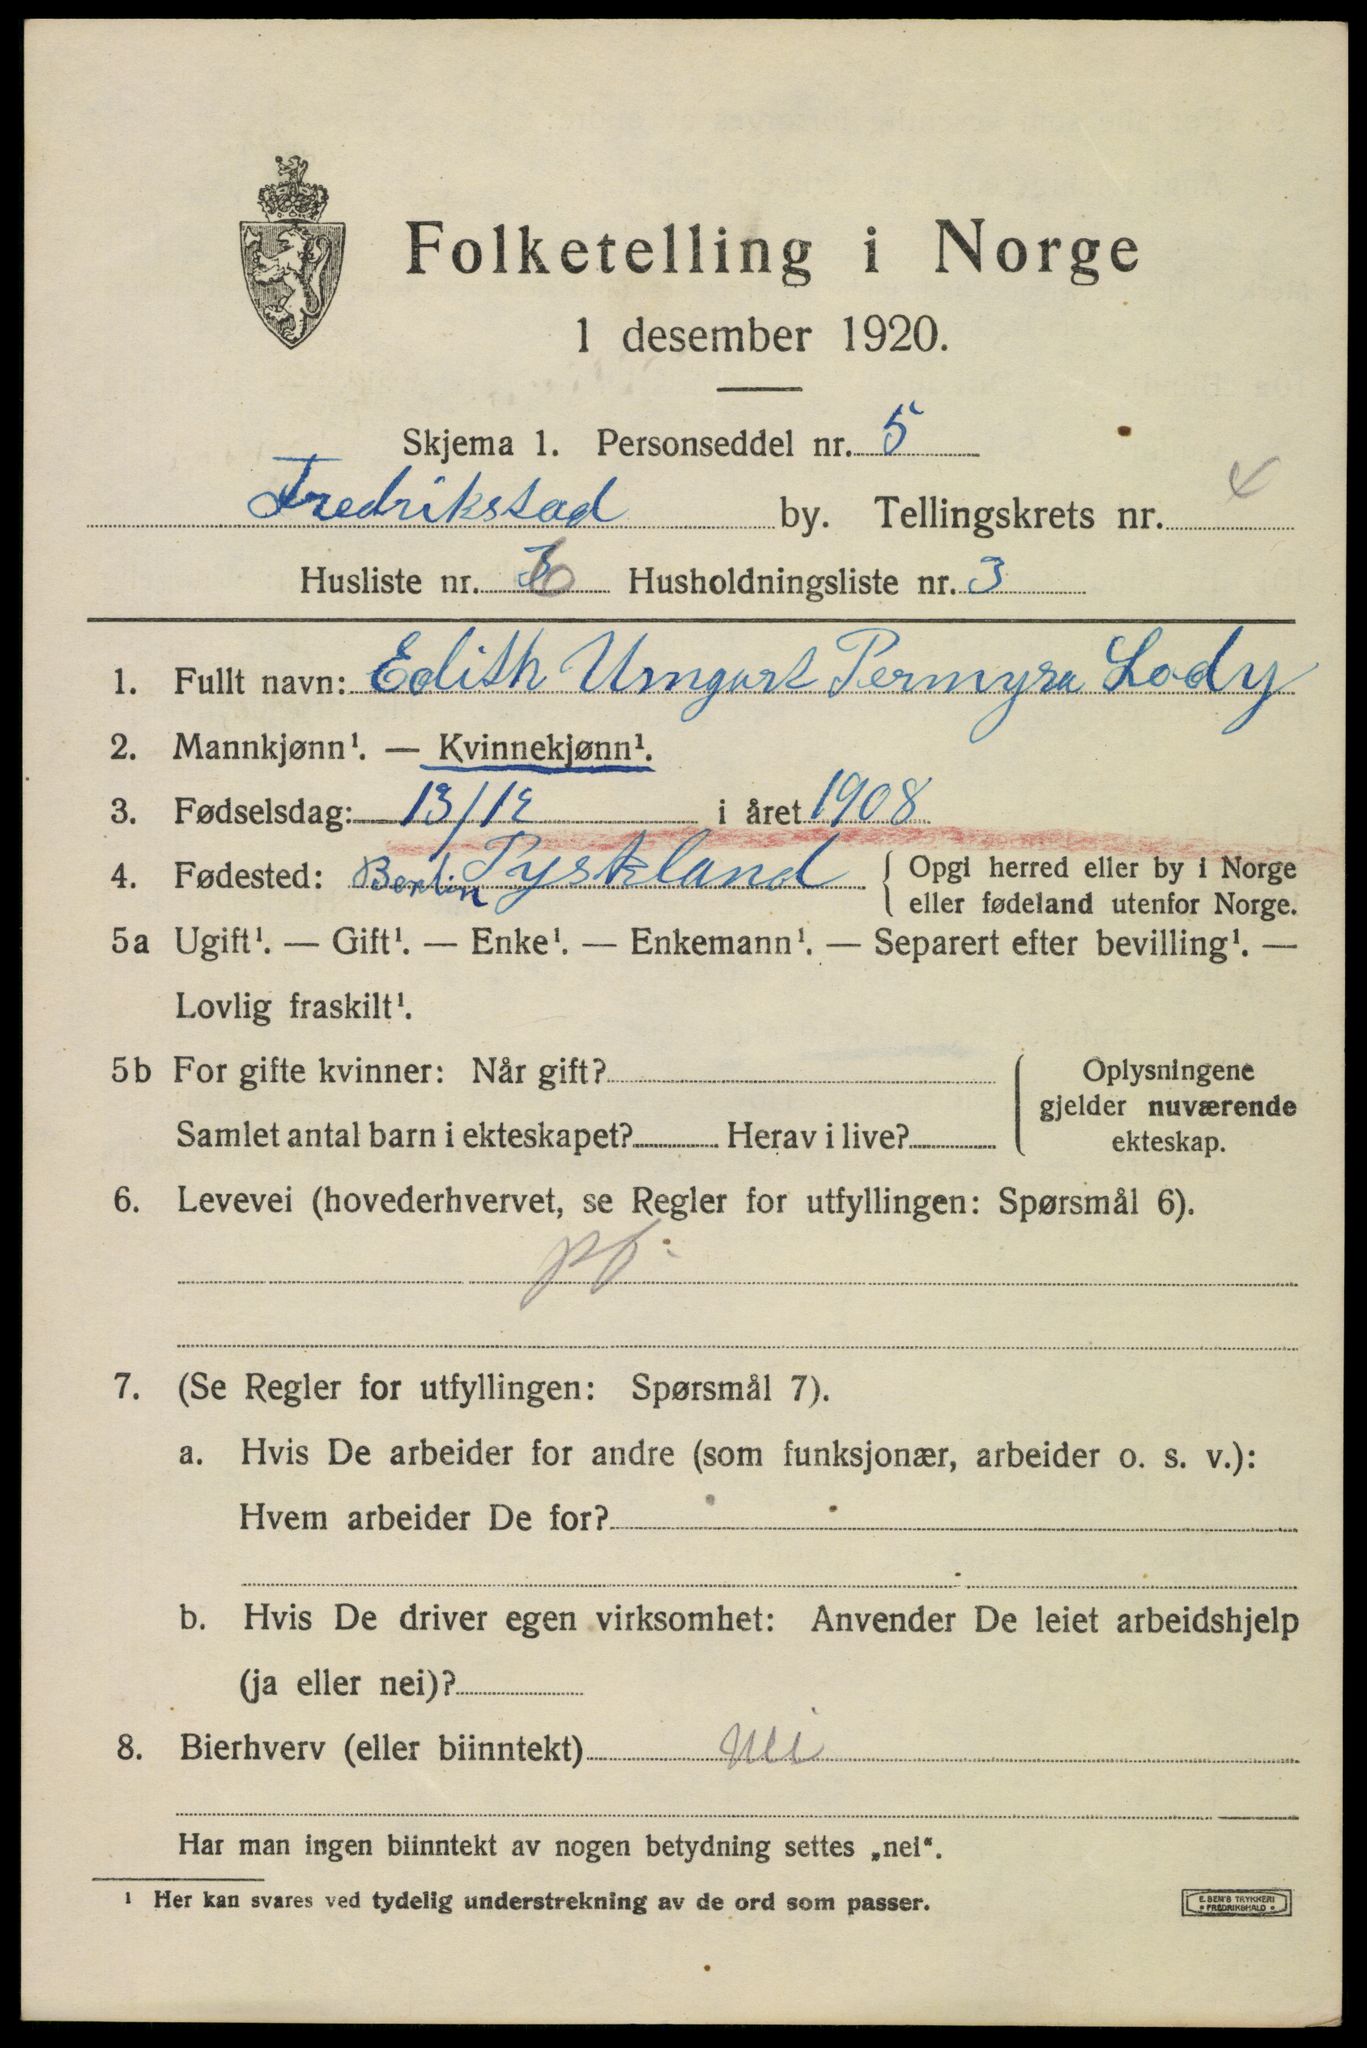 Folketelling i Norge
1 desember 1920.
Skjema 1. Personseddel nr. 5
Fredrikstad by. Tellingskrets nr. 4
Husliste nr. 6 Husholdningsliste nr. 3
1. Fullt navn: Edith Urngart Permyra Lody
2. Mannkjønn¹. — Kvinnekjønn¹.
3. Fødselsdag: 13/12 i året 1908
4. Fødested: Berlin Tyskland { Opgi herred eller by i Norge
eller fødeland utenfor Norge.
5a Ugift¹. — Gift¹. — Enke¹. — Enkemann¹. — Separert efter bevilling¹. —
Lovlig fraskilt¹.
5b For gifte kvinner: Når gift?
Samlet antal barn i ekteskapet? Herav i live?
Oplysningene
gjelder nuværende
ekteskap.
6. Levevei (hovederhvervet, se Regler for utfyllingen: Spørsmål 6).
pf.
7. (Se Regler for utfyllingen: Spørsmål 7).
a. Hvis De arbeider for andre (som funksjonær, arbeider o. s. v.):
Hvem arbeider De for?
b. Hvis De driver egen virksomhet: Anvender De leiet arbeidshjelp
(ja eller nei)?
8. Bierhverv (eller biinntekt) nei
Har man ingen biinntekt av nogen betydning settes „nei“.
¹ Her kan svares ved tydelig understrekning av de ord som passer.
E. SEM'S TRYKKERI
• FREDRIKSHALD •